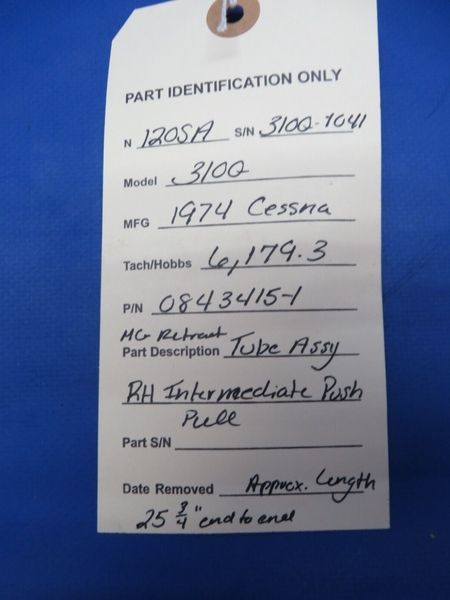 PART IDENTIFICATION ONLY
N 120SA S/N 310Q-1041
Model 310Q
MFG 1974 Cessna
Tach/Hobbs 6,179.3
P/N 0843415-1
MG Retract
Part Description Tube Assy
RH Intermediate Push
Pull
Part S/N
Date Removed Approx. Length
25 3/4" end to end